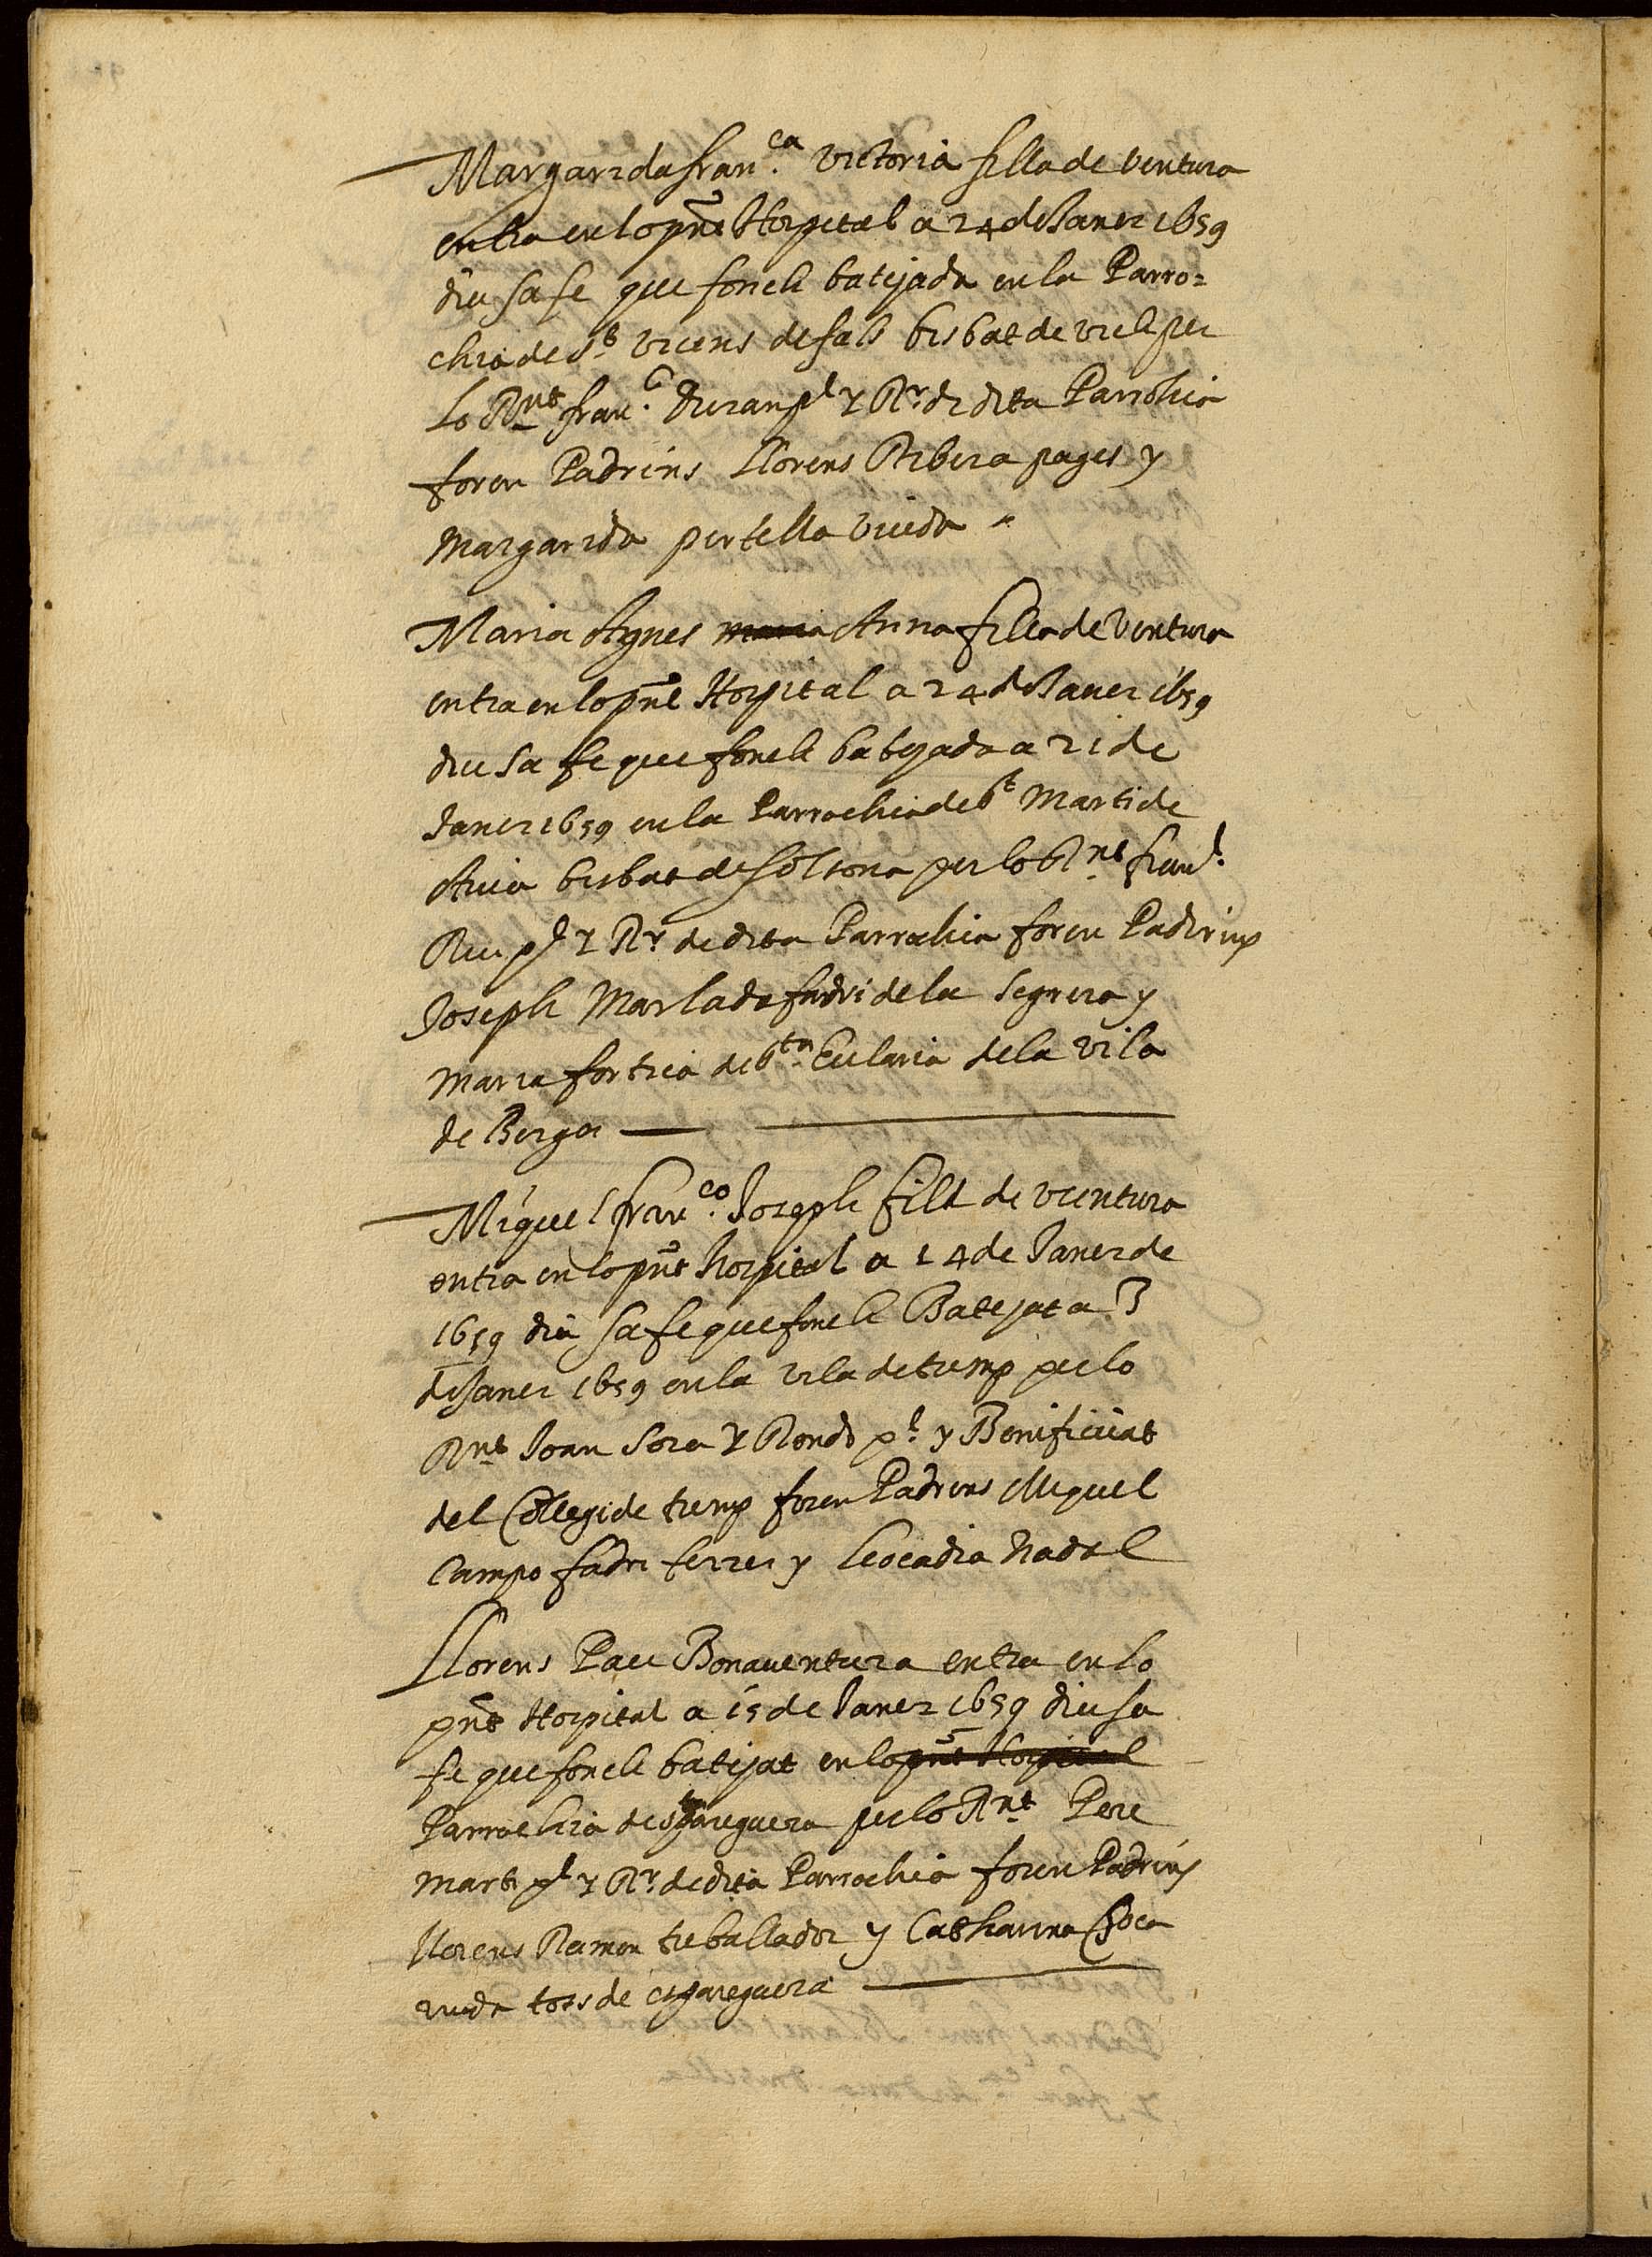 Margarida fran.ca victoria filla de ventura
entra en lo pñt Hospital a 24 de Janer 1659
diu sa fe que fonch batejada en la Parro=
chia de St vicens de fals bisbat de vich per
Lo Rnt fran.c Duran pr y Rr di dita Parrochia
foren Padrins Llorens Ribera pages y
Margarida pertella viuda
Maria Agnes maria Anna filla de Ventura
entra en lo pñt Hospital a 24 de Janer 1659
diu sa fe que fonch batejada a 21 de
Janer 1659 en la Parrochia de St Marti de
Avia bisbat de solsona per lo Rnt fran.
Riu pr y Rr de dita Parrochia foren Padrins
Joseph Marlada fadri de la segrera y
Maria fortia de Sta Eularia de la vila
de Berga
Miquel fran.co Joseph fill de ventura
entra en lo pñt hospital a 14 de Janer de
1659 diu sa fe que fonch Batejat a 3
de Janer 1659 en la vila de tremp per lo
Rnt Joan sora y Rondo pr y Benificiat
del Collegi de tremp foren Padrins Miquel
Campo fadri ferrer y Leocadia Nadal
Llorens Pau Bonaventura entra en lo
pñt Hospital a 15 de Janer 1659 diu sa
fe que fonch batejat en lo pñt Hospital
Parrochia de spareguera per lo Rnt Pere
Marti pr y Rr de dita Parrochia foren Padrins
Llorens Ramon treballador y Catharina Roca
viuda tots de espareguera